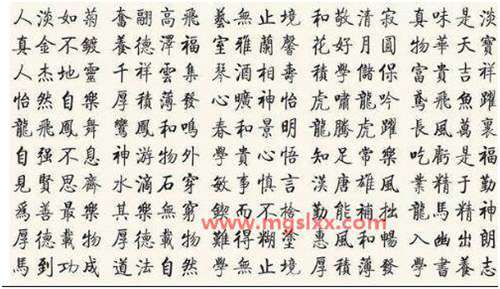 人淡如菊 奮翮高飛 藝無止境 和敬清寂 真味是淡
真金不鍍 養德澤福 室雅蘭馨 花好月圓 物華天寶
人杰地靈 千祥雲集 琴酒相壽 學儲保 富貴吉祥
怡然自樂 厚積薄發 心曠神怡 虎嘯龍吟 鳶飛魚躍
龍飛鳳舞 鸞鳳和鳴 春和景明 龍騰虎躍 長風萬裏
自强不息 神游物外 學貴心悟 知足常樂 吃虧是福
見賢思齊 水滴石穿 敏事慎言 漢唐雄風 業精于勤
爲善最樂 其樂無窮 鍥而不捨 勤能補拙 龍馬精神
www.mgslxx.com
厚德載物 難得糊塗 惠風和暢 入幽出朗
馬到功成 道法自然 學無止境 厚積薄發 學書養志